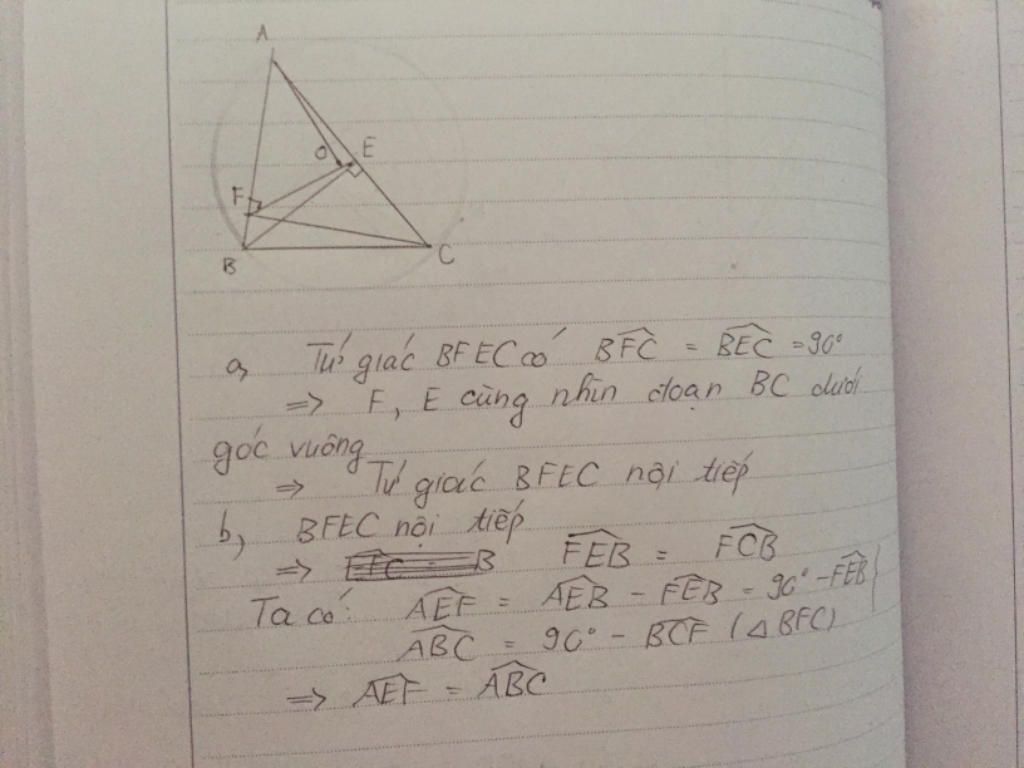 A
O
E
F
B
C
a, Tứ giác BFEC có \widehat{BFC} = \widehat{BEC} = 90°
=> F, E cùng nhìn đoạn BC dưới
góc vuông
=> Tứ giác BFEC nội tiếp
b, BFEC nội tiếp
=> \widehat{FEB} = \widehat{FCB}
Ta có: \widehat{AEF} = \widehat{AEB} - \widehat{FEB} = 90° - \widehat{FEB}
\widehat{ABC} = 90° - \widehat{BCF} (△BFC)
=> \widehat{AEF} = \widehat{ABC}